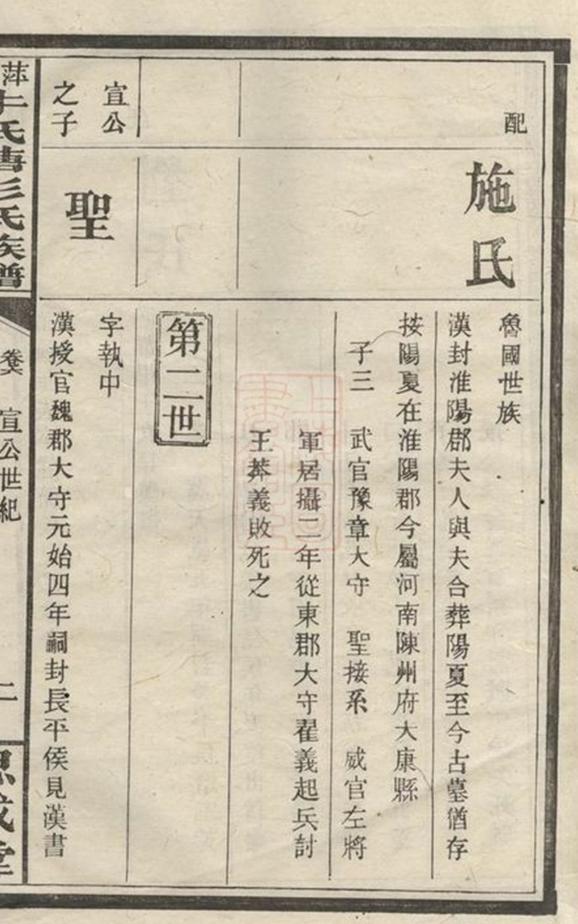 配
施氏
魯國世族
漢封淮陽郡夫人與夫合葬陽夏至今古墓猶存
按陽夏在淮陽郡今屬河南陳州府大康縣
子三 武官豫章大守 聖接系 威官左將
軍居攝二年從東郡大守翟義起兵討
王莽義敗死之
第二世
宣公
之子
聖
字執中
漢授官魏郡大守元始四年嗣封長平侯見漢書
萍
氏
彭氏族譜
宣公世紀
二